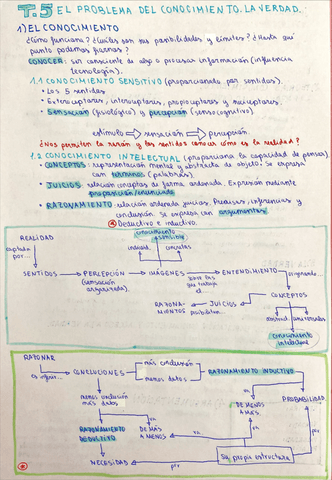 T.5 EL PROBLEMA DEL CONOCIMIENTO. LA VERDAD.
1) EL CONOCIMIENTO
¿Cómo funciona? ¿Cuáles son sus posibilidades y límites? ¿Hasta qué
punto podemos fiarnos?
CONOCER: ser consciente de algo o procesar información (influencia
tecnología).
1.1 CONOCIMIENTO SENSITIVO (proporcionado por sentidos).
• Los 5 sentidos
• Exteroceptores, interoceptores, propioceptores y nociceptores.
• Sensación (fisiológico) y percepción (senso cognitivo)
estímulo → sensación → percepción.
¿Nos permiten la razón y los sentidos conocer cómo es la realidad?
1.2 CONOCIMIENTO INTELECTUAL (proporciona la capacidad de pensar)
• CONCEPTOS: representación mental y abstracta de objeto. Se expresa
con términos (palabras).
• JUICIOS: relación conceptos de forma ordenada. Expresan mediante
proposición/enunciado
• RAZONAMIENTO: relación ordenada juicios. Premisas, inferencias y
conclusión. Se expresa con argumentos.
Deductivo e inductivo.
REALIDAD
captada
por...
conocimiento
sensible
individ.
concretas
SENTIDOS → PERCEPCIÓN → IMÁGENES → ENTENDIMIENTO → originando...
(sensación
organizada).
sobre las
que trabaja
el
CONCEPTOS
RAZONA-
MIENTOS
JUICIOS
posibilitan...
abstract.
universales
conocimiento
intelectual
RAZONAR
es inferir...
CONCLUSIONES
más conclusión
menos datos
RAZONAMIENTO INDUCTIVO
menos conclusión
más datos
va
DE MENOS
A MÁS
PROBABILIDAD
va
RAZONAMIENTO
DEDUCTIVO
DE MÁS
A MENOS
va
por
Su propia estructura
NECESIDAD
por